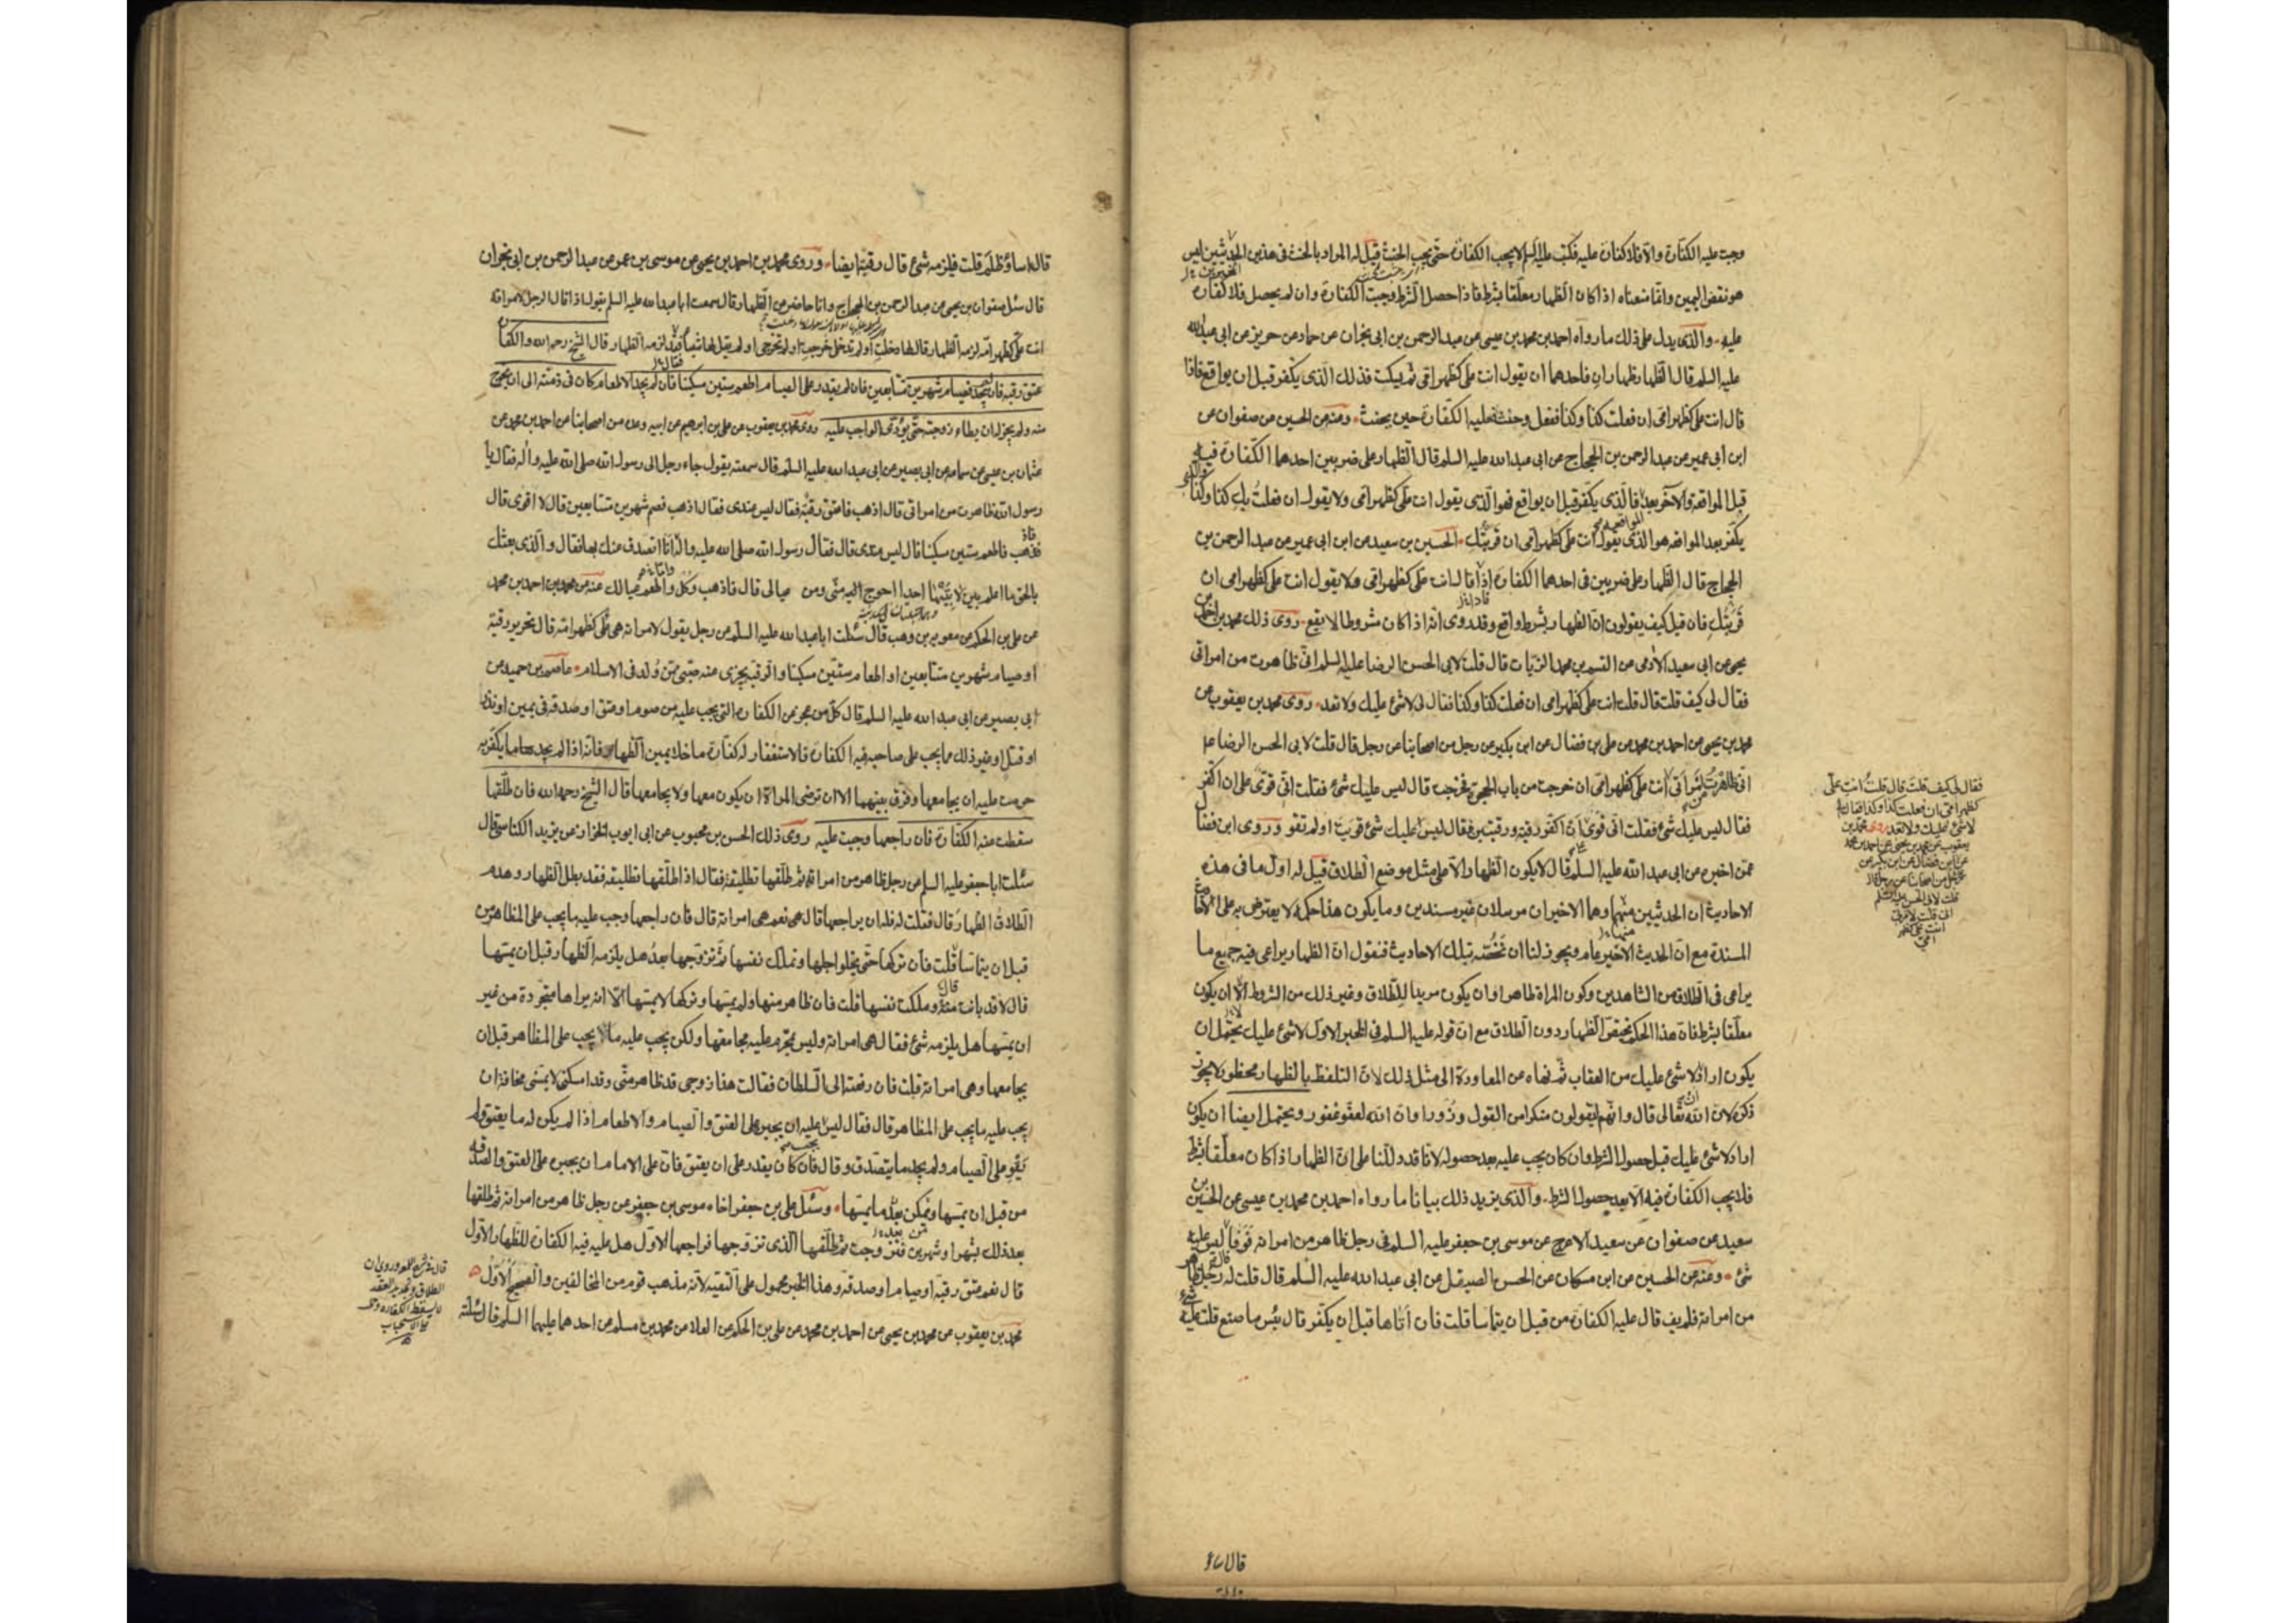 وجبت عليه الكفارة والا فلا كفارة عليه فكتب عليه السلم لا يجب الكفارة حتى يجب الحنث قيل له المراد بالحنث فى هذين الحديثين ليس
هو نقض اليمين وانما معناه اذا كان الظهار معلقا بشرط فاذا حصل الشرط وجبت الكفارة وان لم يحصل فلا كفارة
عليه والذى يدل على ذلك ما رواه احمد بن محمد بن عيسى عن عبد الرحمن بن ابى نجران عن حماد عن حريز عن ابى عبد الله
عليه السلم قال الظهار ظهاران فاحدهما ان يقول انت على كظهر امى ثم يسكت فذلك الذى يكفر قبل ان يواقع فاذا
قال انت على كظهر امى ان فعلت كذا وكذا ففعل وحنث فعليه الكفارة حين يحنث وعنه عن الحسين عن صفوان عن
ابن ابى عمير عن عبد الرحمن بن الحجاج عن ابى عبد الله عليه السلم قال الظهار على ضربين احدهما الكفارة فيه
قبل المواقعة والآخر بعد فالذى يكفر قبل ان يواقع فهو الذى يقول انت على كظهر امى ولا يقول ان فعلت بك كذا وكذا
يكفر بعد المواقعه هو الذى يقول انت على كظهر امى ان قربتك الحسين بن سعيد عن ابن ابى عمير عن عبد الرحمن بن
الحجاج قال الظهار على ضربين فى احدهما الكفارة اذا قال انت على كظهر امى ولا يقول انت على كظهر امى ان
قربتك فان قيل كيف يقولون ان الظهار بشرط واقع وقد روى انه اذا كان مشروطا لا يقع روى ذلك محمد بن احمد بن
يحيى عن ابى سعيد الآدمى عن القسم بن محمد الزيات قال قلت لابى الحسن الرضا عليه السلم انى ظاهرت من امراتى
فقال لى كيف قلت قال قلت انت على كظهر امى ان فعلت كذا وكذا فقال لى لا شئ عليك ولا تعد روى محمد بن يعقوب عن
محمد بن يحيى عن احمد بن محمد عن على بن فضال عن ابن بكير عن رجل من اصحابنا عن رجل قال قلت لابى الحسن الرضا
انى ظاهرت من امراتى انت على كظهر امى ان خرجت من باب الحجرة فخرجت قال ليس عليك شئ فقلت انى قوى على ان اكفر
فقال ليس عليك شئ فقلت انى قوى ان اكفر رقبة ورقبتين فقال ليس عليك شئ قويت او لم تقو وروى ابن فضال
عمن اخبره عن ابى عبد الله عليه السلم قال لا يكون الظهار الا على مثل موضع الطلاق قيل له اول ما فى هذه
الاحاديث ان الحديثين منهما وهما الاخيران مرسلان غير مسندين وما يكون هذا حكمه لا يعترض به على
المسندة مع ان الحديث الاخير عام ويجوز لنا ان نخصه بتلك الاحاديث فنقول ان الظهار يراعى فيه جميع ما
يراعى فى الطلاق من الشاهدين وكون المراة طاهرا وان يكون مريدا للطلاق وغير ذلك من الشروط الا ان يكون
معلقا بشرط فان هذا الحكم يختص الظهار دون الطلاق مع ان قوله عليه السلم فى الخبر الاول لا شئ عليك يحتمل ان
يكون اراد لا شئ عليك من العقاب ثم نهاه عن المعاودة الى مثل ذلك لان التلفظ بالظهار محظور لا يجوز
ذكره لان الله تعالى قال وانهم ليقولون منكرا من القول وزورا وان الله لعفو غفور ويحتمل ايضا ان يكون
اراد لا شئ عليك قبل حصول الشرط وان كان يجب عليه بعد حصوله لانا قد دللنا على ان الظهار اذا كان معلقا بشرط
فلا يجب الكفارة فيه الا بعد حصول الشرط والذى يزيد ذلك بيانا ما رواه احمد بن محمد بن عيسى عن الحسين بن
سعيد عن صفوان عن سعيد الاعرج عن موسى بن جعفر عليه السلم فى رجل ظاهر من امراته فوفا ليس عليه
شئ وعنه عن الحسين عن ابن مسكان عن الحسن الصيقل عن ابى عبد الله عليه السلم قال قلت له رجل ظاهر
من امراته فلم يف قال عليه الكفارة من قبل ان يتماسا قلت فان اتاها قبل ان يكفر قال بئس ما صنع قلت عليه شئ
فقال لى كيف قلت قال قلت انت على
كظهر امى ان فعلت كذا وكذا فقال لى
لا شئ عليك ولا تعد روى محمد بن
يعقوب عن محمد بن يحيى عن احمد بن محمد
عن ابن فضال عن ابن بكير عن
رجل من اصحابنا عن رجل قال
قلت لابى الحسن عليه السلم
انى قلت لامراتى
انت على كظهر
امى
قال اساء
قال اساء وظلم قلت فيلزمه شئ قال رقبة ايضا وروى محمد بن احمد بن يحيى عن موسى بن عمر عن عبد الرحمن بن ابى نجران
قال سئل صفوان بن يحيى عن عبد الرحمن بن الحجاج وانا حاضر عن الظهار قال سمعت ابا عبد الله عليه السلم يقول اذا قال الرجل لامراته
انت على كظهر امى لزمه الظهار قال لها دخلت او لم تدخلى خرجت او لم تخرجى او لم يقل لها شيئا فقد لزمه الظهار قال الشيخ رحمه الله والكفارة
عتق رقبة فان لم يجد فصيام شهرين متتابعين فان لم يقدر على الصيام اطعم ستين مسكينا فان لم يجد الاطعام كان فى ذمته الى ان يخرج
منه ولم يجز له ان يطاء زوجته حتى يؤدى الواجب عليه روى محمد بن يعقوب عن على بن ابرهيم عن ابيه وعدة من اصحابنا عن احمد بن محمد عن
عثمان بن عيسى عن سماعه عن ابى بصير عن ابى عبد الله عليه السلم قال سمعته يقول جاء رجل الى رسول الله صلى الله عليه واله فقال يا
رسول الله ظاهرت من امراتى قال اذهب فاعتق رقبة فقال ليس عندى فقال اذهب فصم شهرين متتابعين قال لا اقوى قال
فاذهب فاطعم ستين مسكينا قال ليس عندى قال فقال رسول الله صلى الله عليه واله انا اتصدق عنك بها فقال والذى بعثك
بالحق ما اعلم بين لابتيها احدا احوج اليه منى ومن عيالى قال فاذهب وكل واطعم عيالك عنه عن محمد بن احمد بن محمد
عن على بن الحكم عن معوية بن وهب قال سئلت ابا عبد الله عليه السلم عن رجل يقول لامراته هى على كظهر امه قال تحرير رقبة
او صيام شهرين متتابعين او اطعام ستين مسكينا والرقبة يجزى عنه صبى ممن ولد فى الاسلام عاصم بن حميد عن
ابى بصير عن ابى عبد الله عليه السلم قال كل من عجز عن الكفارة التى يجب عليه من صوم او عتق او صدقة فى يمين او نذر
او قتل او غير ذلك مما يجب على صاحبه فيه الكفارة فالاستغفار له كفارة ما خلا يمين الظهار فانه اذا لم يجد ما يكفر به
حرمت عليه ان يجامعها وفرق بينهما الا ان ترضى المراة ان يكون معها ولا يجامعها قال الشيخ رحمه الله فان طلقها
سقطت عنه الكفارة فان راجعها وجبت عليه روى ذلك الحسن بن محبوب عن ابى ايوب الخزاز عن يزيد الكناسى قال
سئلت ابا جعفر عليه السلم عن رجل ظاهر من امراته ثم طلقها تطليقة فقال اذا طلقها تطليقة فقد بطل الظهار وهدم
الطلاق الظهار قال فقلت له فله ان يراجعها قال نعم هى امراته قال فان راجعها وجب عليه ما يجب على المظاهر من
قبل ان يتماسا قلت فان تركها حتى يخلو اجلها وتملك نفسها ثم تزوجها بعد هل يلزمه الظهار قبل ان يمسها
قال لا قد بانت منه وملكت نفسها قلت فان ظاهر منها ولم يمسها وتركها لا يمسها الا انه يراها متجردة من غير
ان يمسها هل يلزمه شئ فقال هى امراته وليس محرم عليه مجامعتها ولكن يجب عليه ما يجب على المظاهر قبل ان
يجامعها وهى امراته قلت فان رفعته الى السلطان فقالت هذا زوجى قد ظاهر منى وقد امسكنى لا يمسنى مخافة ان
يجب عليه ما يجب على المظاهر قال فقال ليس عليه ان يجبر على العتق والصيام والاطعام اذا لم يكن له ما يعتق ولم
يقو على الصيام ولم يجد ما يتصدق وقال فان كان يقدر على ان يعتق فان على الامام ان يجبره على العتق والصدقة
من قبل ان يمسها ومن بعد ما يمسها وسئل على بن جعفر اخاه موسى بن جعفر عن رجل ظاهر من امراته ثم طلقها
بعد ذلك بشهر او شهرين فتزوجت ثم طلقها الذى تزوجها فراجعها الاول هل عليه فيه الكفارة للظهار الاول
قال نعم عتق رقبة او صيام او صدقة وهذا الخبر محمول على التقية لانه مذهب قوم من المخالفين والصحيح الاول
محمد بن يعقوب عن محمد بن يحيى عن احمد بن محمد عن على بن الحكم عن العلا عن محمد بن مسلم عن احدهما عليهما السلم قال سئلته
الطلاق وتجديد العقد
لا يسقط الكفارة
على الاستحباب